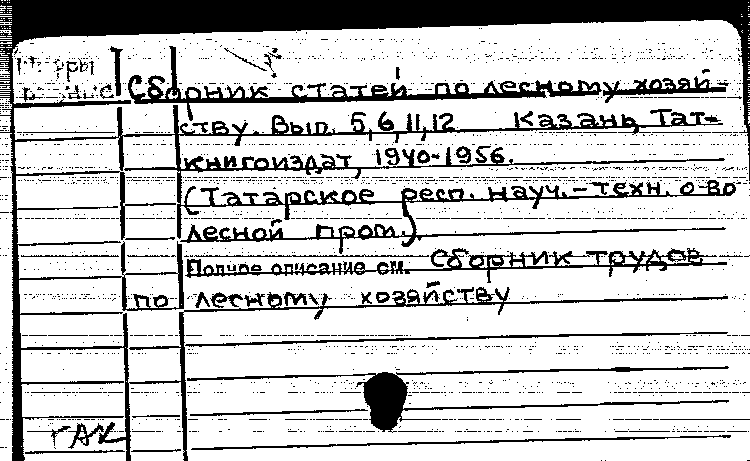 Сборник статей по лесному хозяй-
ству. Вып. 5,6,11,12 Казань, Тат-
книгоиздат, 1940-1956.
(Татарское респ. науч.-техн. о-во
лесной пром.).
Полное описание см. Сборник трудов
по лесному хозяйству